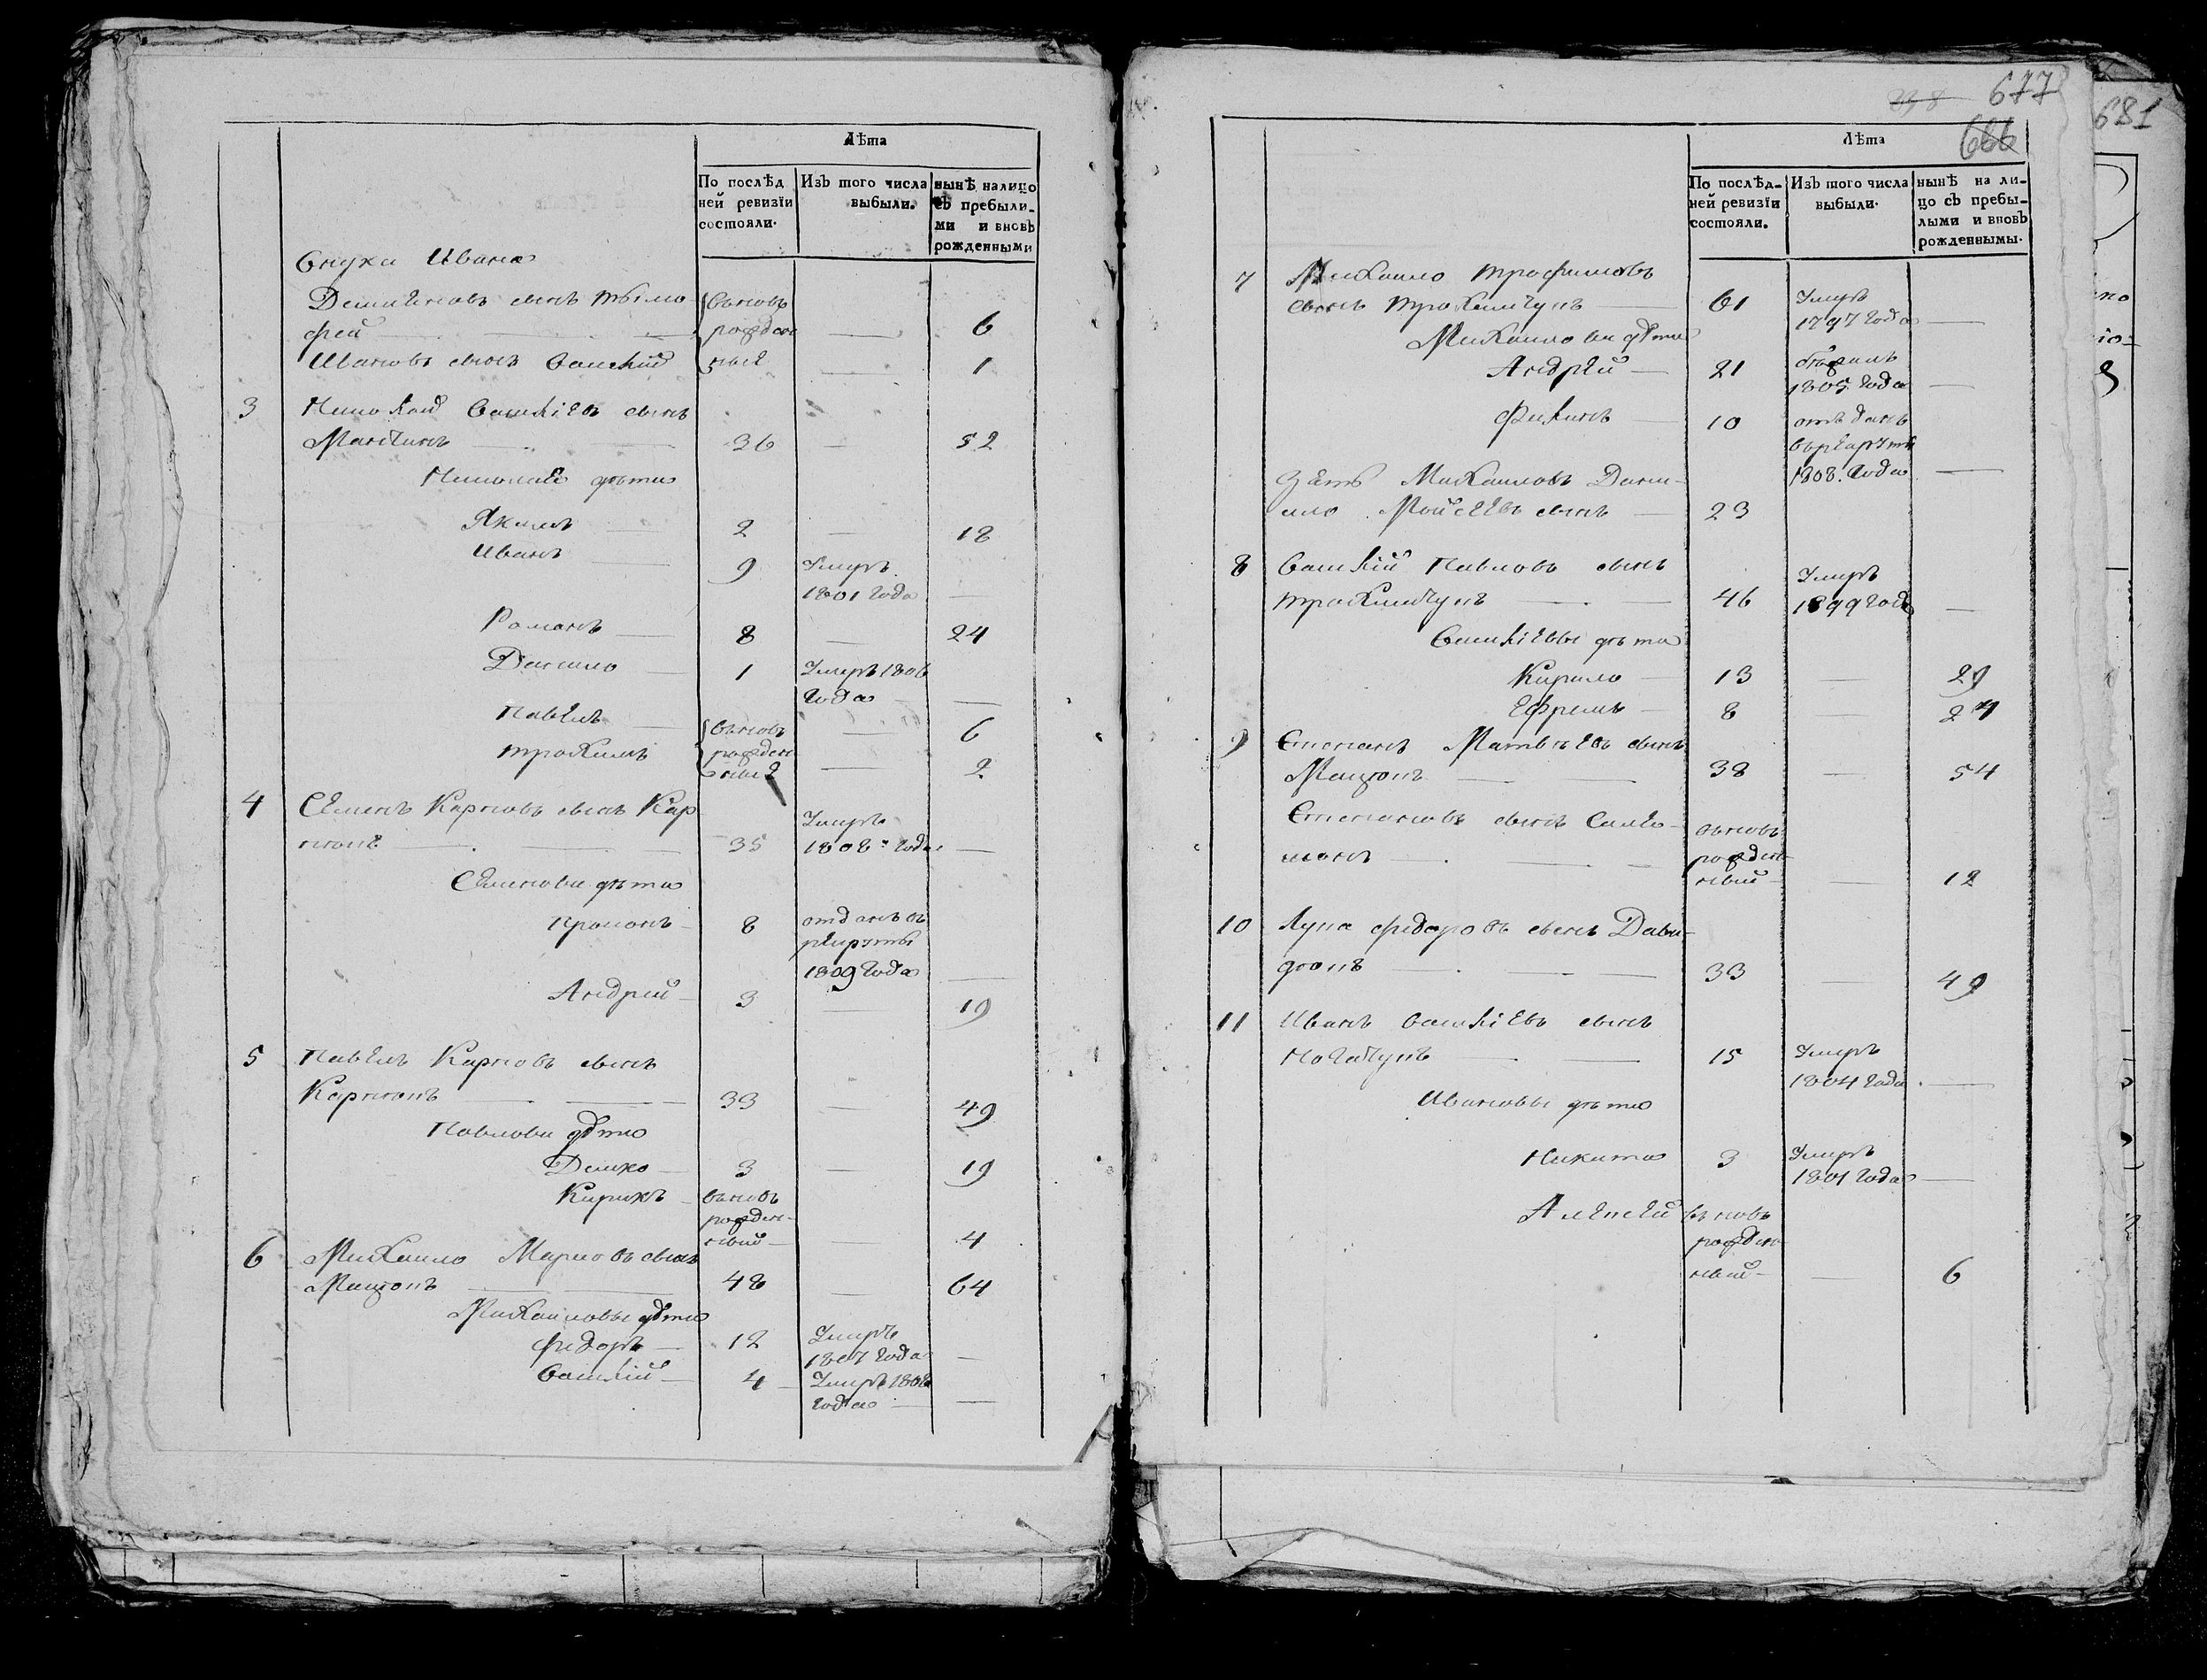 Лѣта
По послѣд
ней ревизїи
состояли.
Изъ того числа
выбыли.
нынѣ налицо
съ пребыли-
ми и вновь
рожденными
Внуки Ивана
Демяновъ сынъ Тимо
фей вьновь рожден 6
Ивановъ сынъ Василий ные 1
3 Николай Василіевъ сынъ
36 — 52
Николаю дѣти
Якимъ 2 — 18
Иванъ 9 Умеръ
1801 года —
Романъ 8 — 24
Данило 1 Умеръ 1806
года —
Павелъ вьновь — 6
Трохимъ рожден
ные — 2
4 Семенъ Карповъ сынъ Кар
35 Умеръ
1808 года —
Семенови дѣти
8 отданъ въ
рекруты
1809 года —
Андрей 3 — 19
5 Павелъ Карповъ сынъ
33 — 49
Павлови дѣти
Демко 3 — 19
Кирикъ вьновь
рожден-
ный — 4
6 Михайло Марковъ сынъ
Мацюпъ 48 — 64
Михайловы дѣти
Федоръ 12 Умеръ
1807 года —
Василий 4 Умеръ 1808
года —
677
681
666
Лѣта
По послѣд-
ней ревизїи
состояли.
Изъ того числа
выбыли.
нынѣ на ли-
цо съ пребы-
лыми и вновь
рожденнымы.
7 Михайло Трофимовъ
сынъ Трохимчукъ 61 Умеръ
1797 года —
Михайлови дѣти
Андрей 21
1805 года —
10 отъданъ
въ рекруты
1808. года —
Зять Михайловъ Дани-
ило Мойсеевъ сынъ 23
8 Василий Павловъ сынъ
Трохимчукъ 46 Умеръ
1899 года —
Василіевы дѣти
Кирило 13 — 29
Ефремъ 8 — 24
9 Степанъ Матвѣевъ сынъ
Мацюпъ 38 — 54
Степановъ сынъ
вьновь
рожден-
ный — 12
10 Лука Федоровъ сынъ Дави-
дюпъ 33 — 49
11 Иванъ Василіевъ сынъ
15 Умеръ
1804 года —
Ивановы дѣти
Никита 3 Умеръ
1801 года —
Алексей вьновь
рожден-
ный — 6